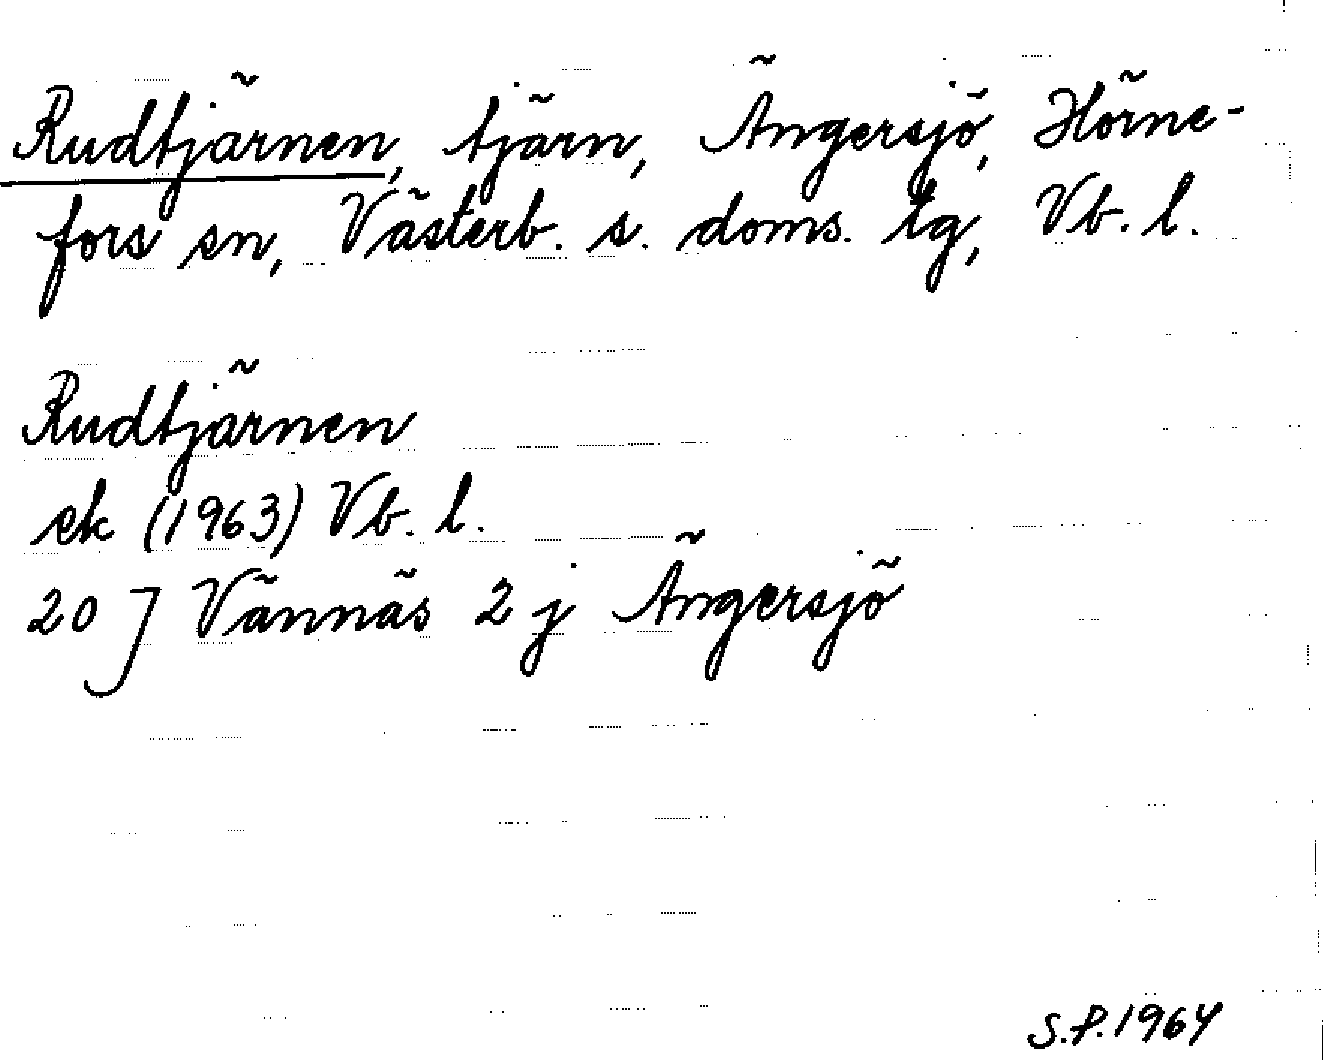 Rudtjärnen, tjärn, Ängersjö, Hörne-
fors sn, Västerb. s. doms. tg, Vb. l.
Rudtjärnen
ek (1963) Vb. l.
20 J Vännäs 2 j Ängersjö
S.P. 1964